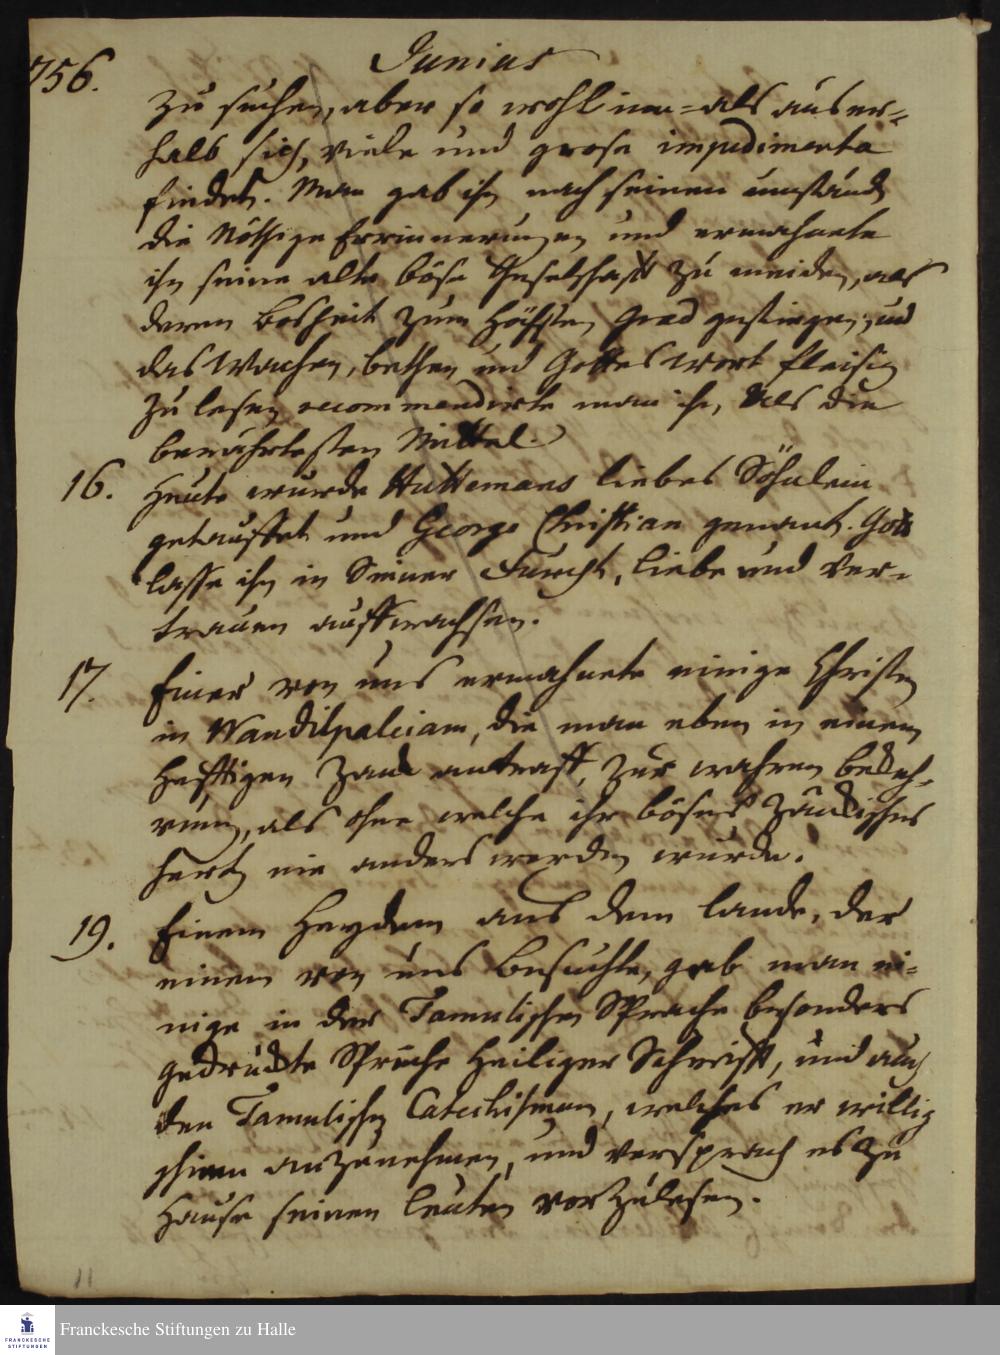 756.
Junius
zu suchen, aber so wohl inn=als auser-
halb sich, viele und grose impedimenta
findet. Man gab ihm nach seinen umständ
die Nöthige Errinnerungen und ermahnete
ihn seine alte böse Geselschafft zu meiden, als
deren Bosheit zum höchsten Grad gestiegen, und
das Wachen, bethen und Gottes wort fleisig
zu lesen recommendirte man ihm, als die
bewährtesten Mittel.
16. Heute wurde Huttemans liebes Söhnlein
getauffet und George Christian genant. Gott
lasse ihn in Seiner Furcht, liebe und Ver-
trauen auffwachsen.
17. Einer von uns ermahnete einige Christen
in Wandilpaleiam, die man eben in einem
hefftigen Zanck antraff, zur wahren bekeh-
rung, als ohne welche ihr böses zänckisches
hertz nie anders werden wurde.
19. Einem Heyden aus dem lande, der
einen von uns besuchte, gab man ei-
nige in der Tamulischen Sprache besonders
gedruckte Sprüche Heiliger Schrifft, und auch
den Tamulischen Catechismum, welches er willig
schien anzunehmen, und versprach es zu
Hause seinen leuten vorzulesen.
11
Franckesche Stiftungen zu Halle
FRANCKESCHE
STIFTUNGEN